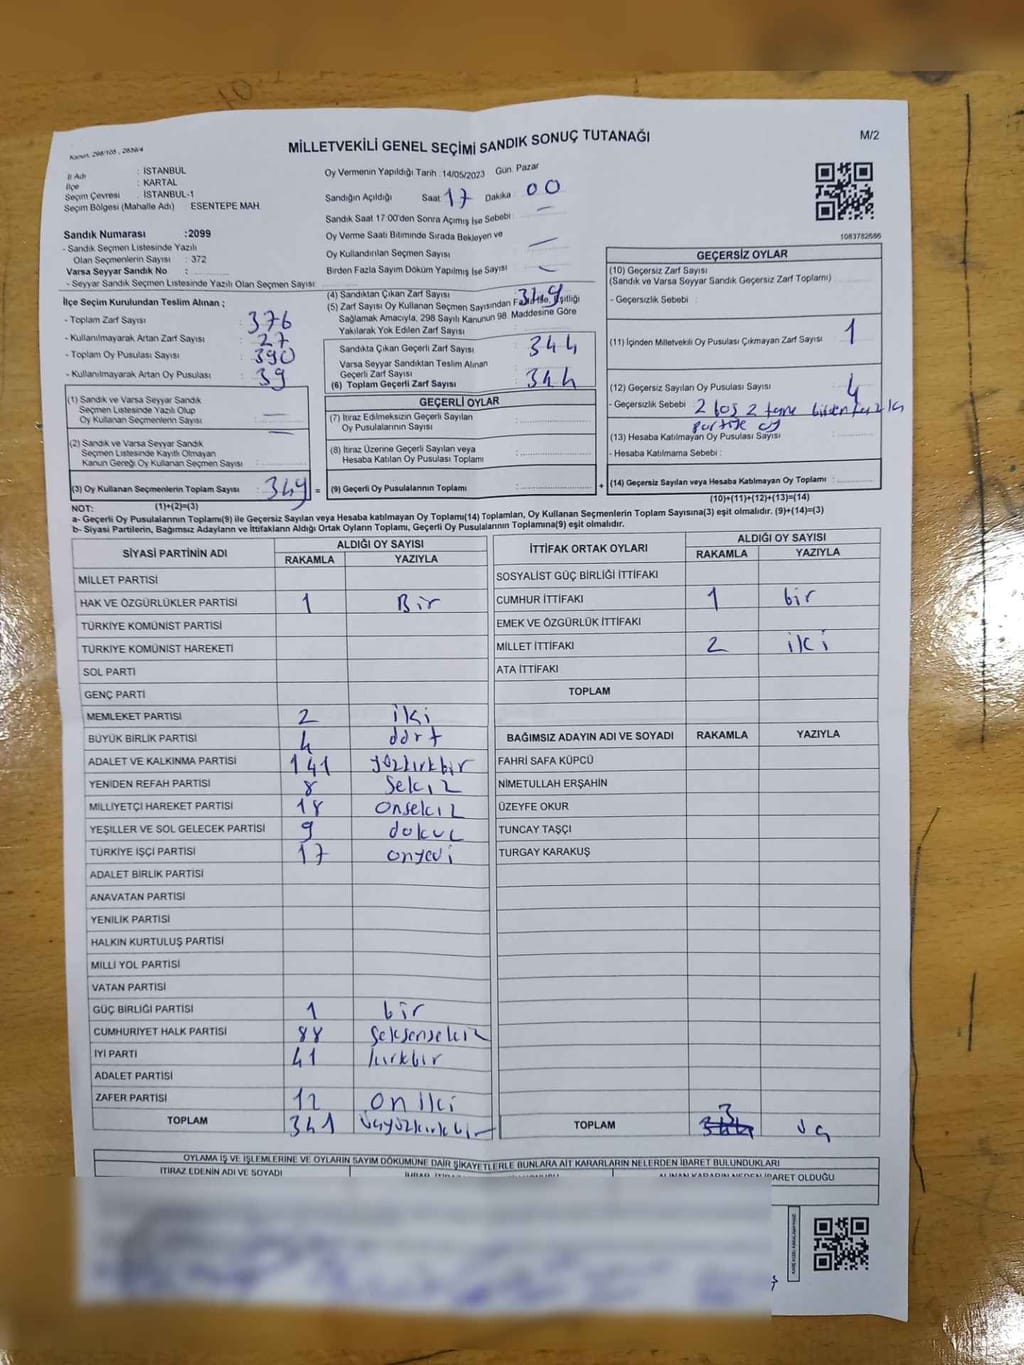 MİLLETVEKİLİ GENEL SEÇİMİ SANDIK SONUÇ TUTANAĞI
M/2
Kanun, 298/105 , 2839/4
İl Adı : İSTANBUL
İlçe : KARTAL
Seçim Çevresi : İSTANBUL-1
Seçim Bölgesi (Mahalle Adı) ESENTEPE MAH.
Oy Vermenin Yapıldığı Tarih : 14/05/2023 Gün: Pazar
Sandığın Açıldığı Saat : 17 Dakika : 00
Sandık Saat 17:00'den Sonra Açımış İse Sebebi :
Oy Verme Saati Bitiminde Sırada Bekleyen ve
Oy Kullandırılan Seçmen Sayısı :
Birden Fazla Sayım Döküm Yapılmış İse Sayısı :
1083782686
Sandık Numarası :2099
- Sandık Seçmen Listesinde Yazılı
Olan Seçmenlerin Sayısı : 372
Varsa Seyyar Sandık No :
- Seyyar Sandık Seçmen Listesinde Yazılı Olan Seçmen Sayısı:
İlçe Seçim Kurulundan Teslim Alınan ;
- Toplam Zarf Sayısı : 376
- Kullanılmayarak Artan Zarf Sayısı : 27
- Toplam Oy Pusulası Sayısı : 390
- Kullanılmayarak Artan Oy Pusulası : 39
(1) Sandık ve Varsa Seyyar Sandık
Seçmen Listesinde Yazılı Olup
Oy Kullanan Seçmenlerin Sayısı :
(2) Sandık ve Varsa Seyyar Sandık
Seçmen Listesinde Kayıtlı Olmayan
Kanun Gereği Oy Kullanan Seçmen Sayısı :
(3) Oy Kullanan Seçmenlerin Toplam Sayısı : 349 =
(1)+(2)=(3)
(4) Sandıktan Çıkan Zarf Sayısı : 349
(5) Zarf Sayısı Oy Kullanan Seçmen Sayısından Fazla İse, Eşitliği
Sağlamak Amacıyla, 298 Sayılı Kanunun 98. Maddesine Göre
Yakılarak Yok Edilen Zarf Sayısı :
Sandıkta Çıkan Geçerli Zarf Sayısı : 344
Varsa Seyyar Sandıktan Teslim Alınan
Geçerli Zarf Sayısı :
(6) Toplam Geçerli Zarf Sayısı : 344
GEÇERLİ OYLAR
(7) İtiraz Edilmeksizin Geçerli Sayılan
Oy Pusulalarının Sayısı :
(8) İtiraz Üzerine Geçerli Sayılan veya
Hesaba Katılan Oy Pusulası Toplamı :
(9) Geçerli Oy Pusulalarının Toplamı : +
GEÇERSİZ OYLAR
(10) Geçersiz Zarf Sayısı
(Sandık ve Varsa Seyyar Sandık Geçersiz Zarf Toplamı) :
- Geçersizlik Sebebi :
(11) İçinden Milletvekili Oy Pusulası Çıkmayan Zarf Sayısı : 1
(12) Geçersiz Sayılan Oy Pusulası Sayısı : 4
- Geçersizlik Sebebi : 2 boş 2 tane birden fazla
partiye oy
(13) Hesaba Katılmayan Oy Pusulası Sayısı :
- Hesaba Katılmama Sebebi :
(14) Geçersiz Sayılan veya Hesaba Katılmayan Oy Toplamı :
(10)+(11)+(12)+(13)=(14)
NOT:
a- Geçerli Oy Pusulalarının Toplamı(9) ile Geçersiz Sayılan veya Hesaba Katılmayan Oy Toplamı(14) Toplamları, Oy Kullanan Seçmenlerin Toplam Sayısına(3) eşit olmalıdır. (9)+(14)=(3)
b- Siyasi Partilerin, Bağımsız Adayların ve İttifakların Aldığı Ortak Oyların Toplamı, Geçerli Oy Pusulalarının Toplamına(9) eşit olmalıdır.
SİYASİ PARTİNİN ADI ALDIĞI OY SAYISI
RAKAMLA YAZIYLA
MİLLET PARTİSİ
HAK VE ÖZGÜRLÜKLER PARTİSİ 1 Bir
TÜRKİYE KOMÜNİST PARTİSİ
TÜRKİYE KOMÜNİST HAREKETİ
SOL PARTİ
GENÇ PARTİ
MEMLEKET PARTİSİ 2 iki
BÜYÜK BİRLİK PARTİSİ 4 dört
ADALET VE KALKINMA PARTİSİ 141 yüzkırkbir
YENİDEN REFAH PARTİSİ 8 Sekiz
MİLLİYETÇİ HAREKET PARTİSİ 18 onsekiz
YEŞİLLER VE SOL GELECEK PARTİSİ 9 dokuz
TÜRKİYE İŞÇİ PARTİSİ 17 onyedi
ADALET BİRLİK PARTİSİ
ANAVATAN PARTİSİ
YENİLİK PARTİSİ
HALKIN KURTULUŞ PARTİSİ
MİLLİ YOL PARTİSİ
VATAN PARTİSİ
GÜÇ BİRLİĞİ PARTİSİ 1 bir
CUMHURİYET HALK PARTİSİ 88 Seksensekiz
İYİ PARTİ 41 kırkbir
ADALET PARTİSİ
ZAFER PARTİSİ 12 on iki
TOPLAM 341 üçyüzkırkbir
İTTİFAK ORTAK OYLARI ALDIĞI OY SAYISI
RAKAMLA YAZIYLA
SOSYALİST GÜÇ BİRLİĞİ İTTİFAKI
CUMHUR İTTİFAKI 1 bir
EMEK VE ÖZGÜRLÜK İTTİFAKI
MİLLET İTTİFAKI 2 iki
ATA İTTİFAKI
TOPLAM
BAĞIMSIZ ADAYIN ADI VE SOYADI RAKAMLA YAZIYLA
FAHRİ SAFA KÜPCÜ
NİMETULLAH ERŞAHİN
ÜZEYFE OKUR
TUNCAY TAŞÇI
TURGAY KARAKUŞ
TOPLAM 3 üç
OYLAMA İŞ VE İŞLEMLERİNE VE OYLARIN SAYIM DÖKÜMÜNE DAİR ŞİKAYETLERLE BUNLARA AİT KARARLARIN NELERDEN İBARET BULUNDUKLARI
İTİRAZ EDENİN ADI VE SOYADI
ALINAN KARARIN NEDEN İBARET OLDUĞU